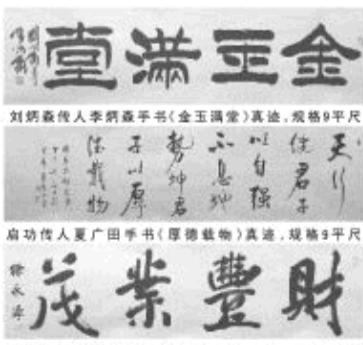 金玉滿堂
刘炳森传人李炳森手书《金玉满堂》真迹，规格9平尺
天行
健君子
以自强
不息地
势坤君
子以厚
德载物
启功传人夏广田手书《厚德载物》真迹，规格9平尺
財豐業茂